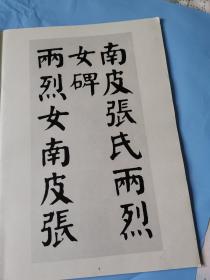 南皮張氏兩烈
女碑
兩烈女南皮張